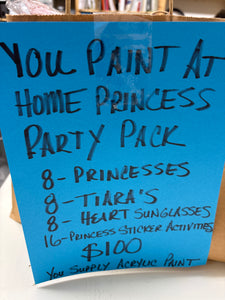 YOU PAINT AT
HOME PRINCESS
PARTY PACK
8-PRINCESSES
8-TIARA'S
8-HEART SUNGLASSES
16-PRINCESS STICKER ACTIVITIES
$100
YOU SUPPLY ACRYLIC PAINT